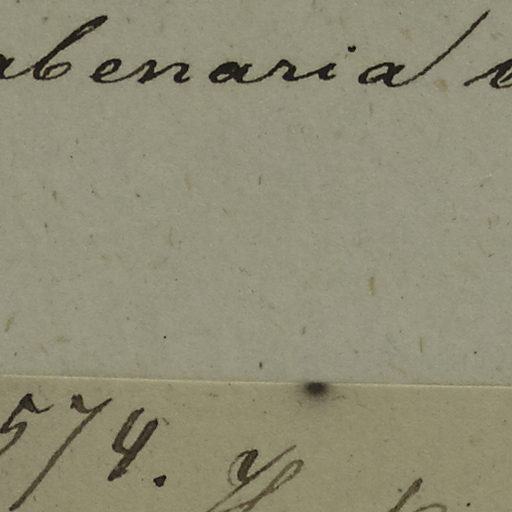 abenaria
574.